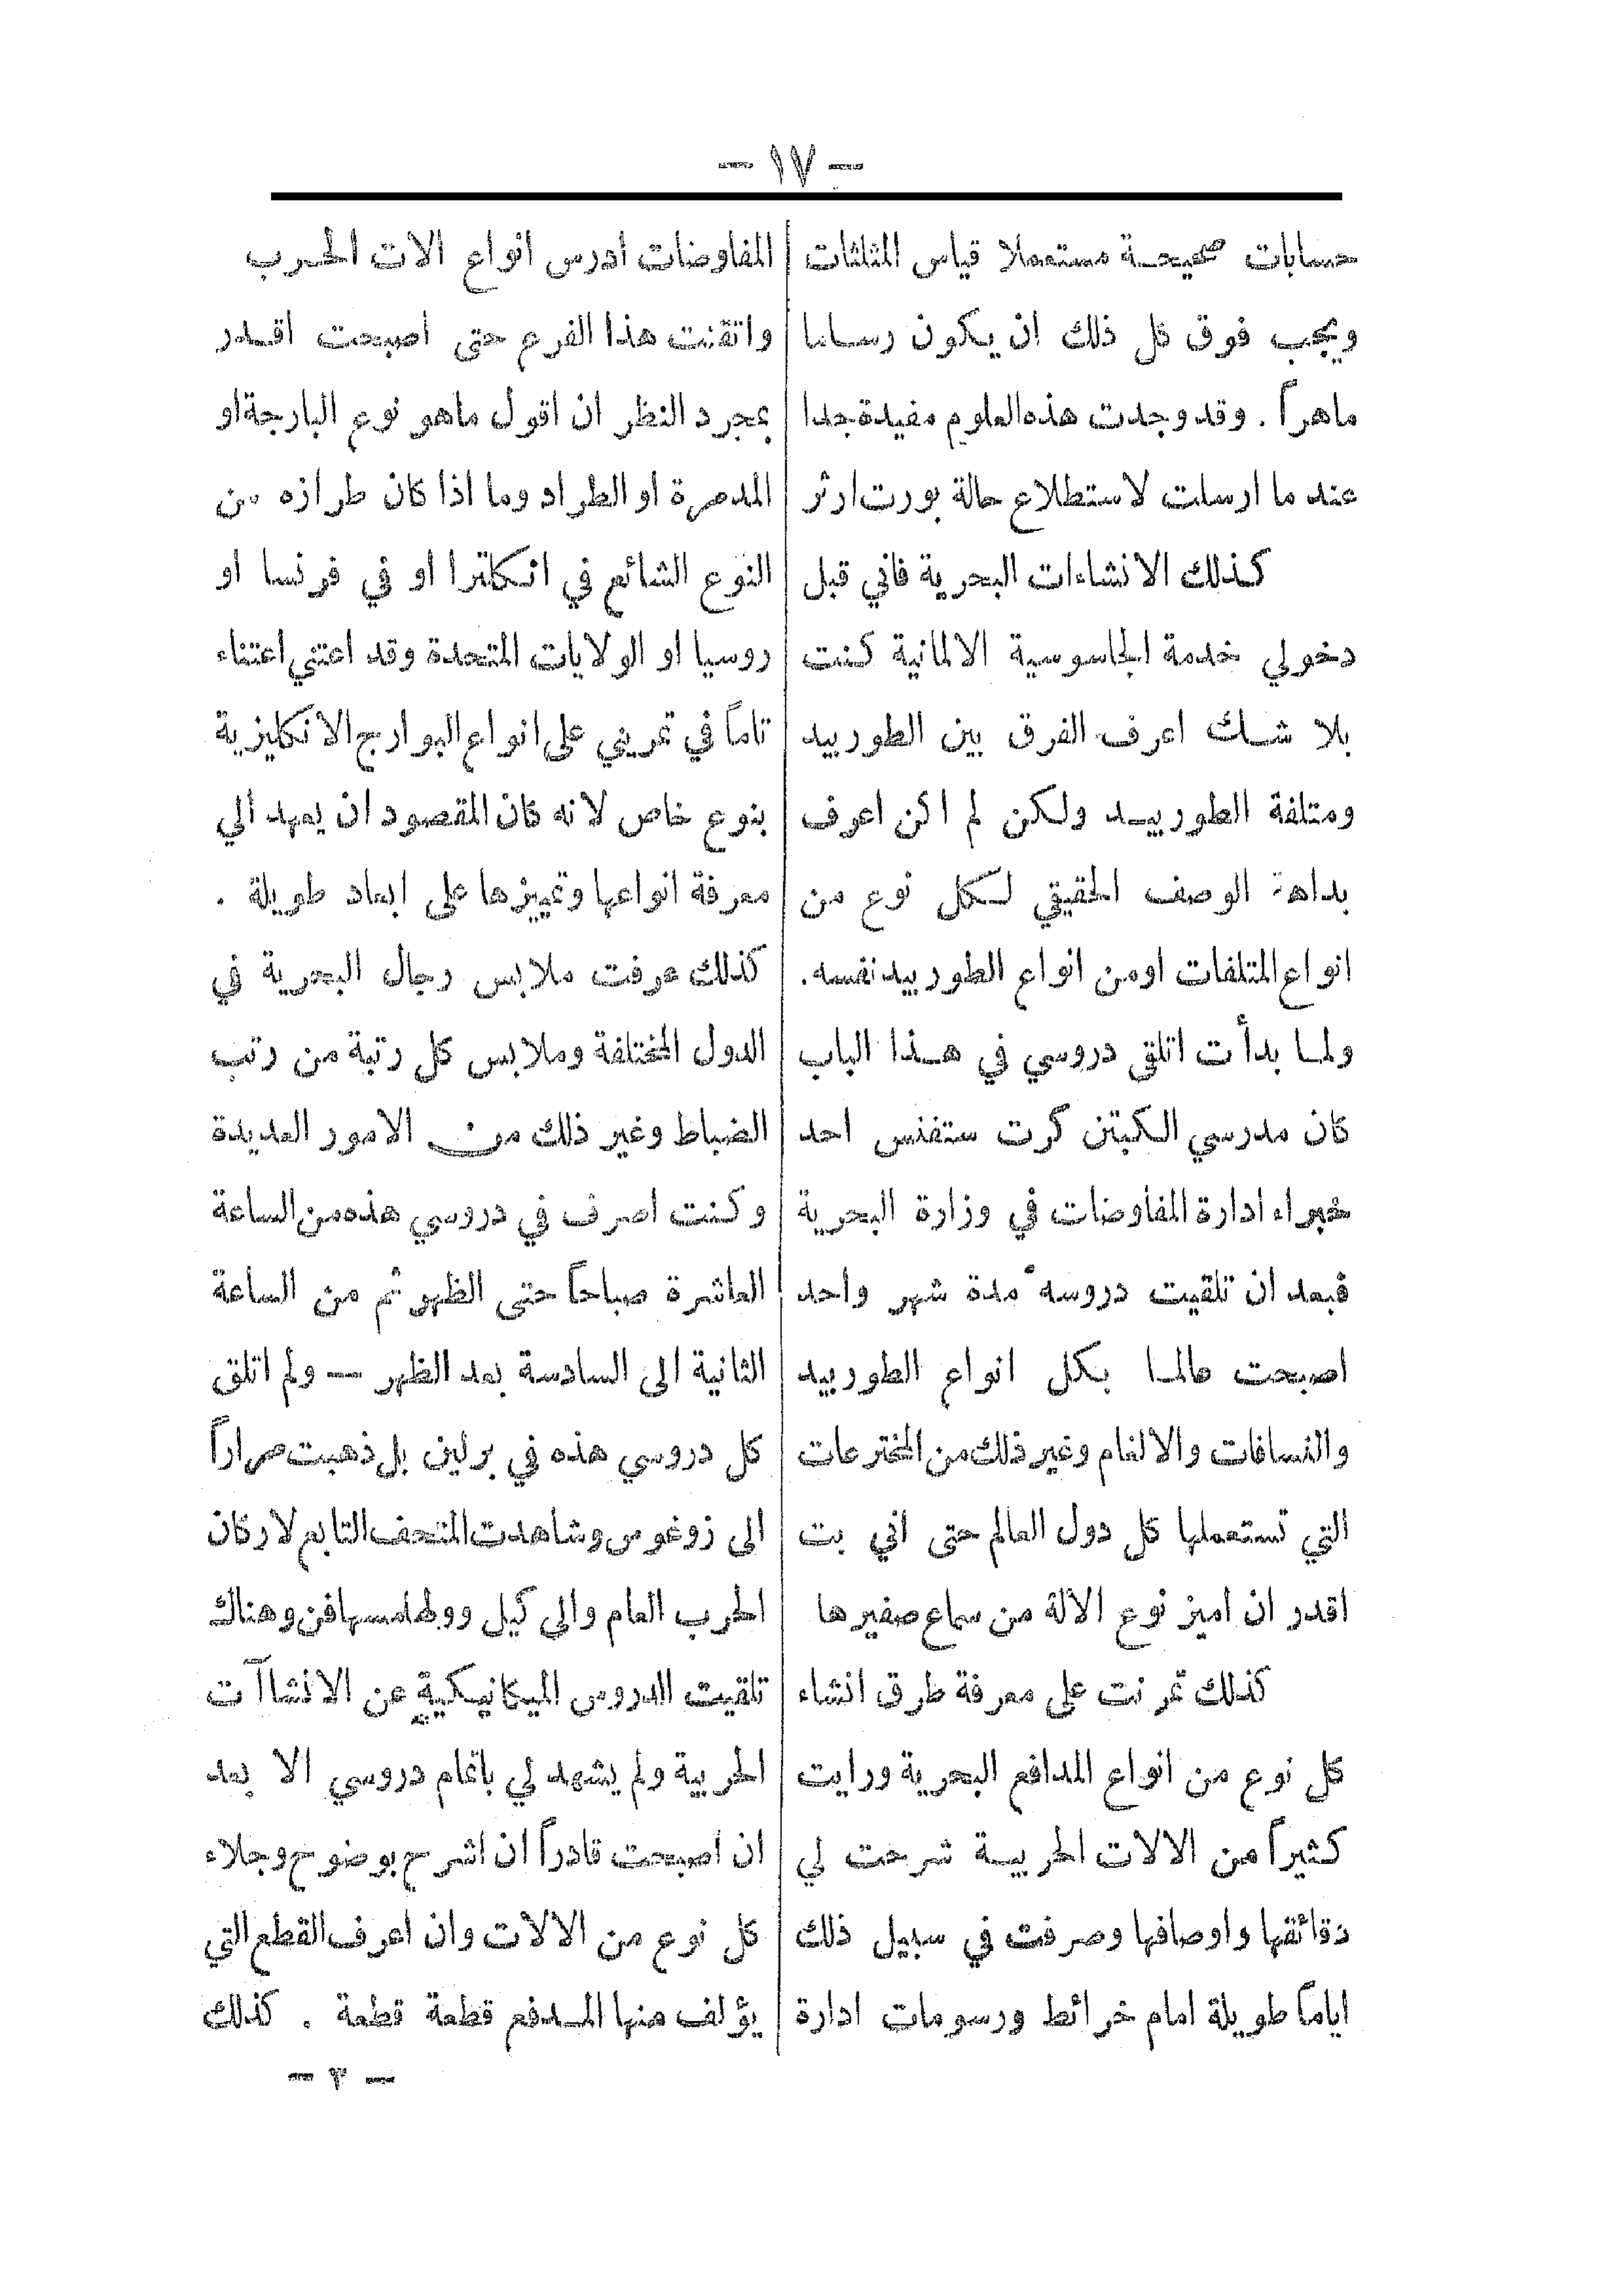 — ١٧ —
حسابات صحيحة مستعملا قياس المثلثات
ويجب فوق كل ذلك ان يكون رساما
ماهراً . وقد وجدت هذه العلوم مفيدة جدا
عند ما ارسلت لاستطلاع حالة بورت ارثر
كذلك الانشاءات البحرية فاني قبل
دخولي خدمة الجاسوسية الالمانية كنت
بلا شك اعرف الفرق بين الطوربيد
ومتلفة الطوربيد ولكن لم اكن اعرف
بداهة الوصف الحقيقي لكل نوع من
انواع المتلفات اومن انواع الطوربيد نفسه.
ولما بدأت اتلقى دروسي في هذا الباب
كان مدرسي الكبتن كرت ستفنس احد
خبراء ادارة المفاوضات في وزارة البحرية
فبعد ان تلقيت دروسه مدة شهر واحد
اصبحت عالما بكل انواع الطوربيد
والنسافات والالغام وغير ذلك من المخترعات
التي تستعملها كل دول العالم حتى اني بت
اقدر ان اميز نوع الالة من سماع صفيرها
كذلك تمرنت على معرفة طرق انشاء
كل نوع من انواع المدافع البحرية ورايت
كثيراً من الالات الحربية شرحت لي
دقائقها واوصافها وصرفت في سبيل ذلك
اياماً طويلة امام خرائط ورسومات ادارة
المفاوضات ادرس انواع الات الحرب
واتقنت هذا الفرع حتى اصبحت اقدر
بمجرد النظر ان اقول ماهو نوع البارجة او
المدمرة او الطراد وما اذا كان طرازه من
النوع الشائع في انكلترا او في فرنسا او
روسيا او الولايات المتحدة وقد اعتني اعتناء
تاماً في تمريني على انواع البوارج الانكليزية
بنوع خاص لانه كان المقصود ان يعهد الي
معرفة انواعها وتمييزها على ابعاد طويلة .
كذلك عرفت ملابس رجال البحرية في
الدول المختلفة وملابس كل رتبة من رتب
الضباط وغير ذلك من الامور العديدة
وكنت اصرف في دروسي هذه من الساعة
العاشرة صباحاً حتى الظهر ثم من الساعة
الثانية الى السادسة بعد الظهر — ولم اتلق
كل دروسي هذه في برلين بل ذهبت مراراً
الى زوغوس وشاهدت المتحف التابع لاركان
الحرب العام والى كيل وولهلمسهافن وهناك
تلقيت الدروس الميكانيكية عن الانشاآت
الحربية ولم يشهد لي باتمام دروسي الا بعد
ان اصبحت قادراً ان اشرح بوضوح وجلاء
كل نوع من الالات وان اعرف القطع التي
يؤلف منها المدفع قطعة قطعة . كذلك
— ٣ —